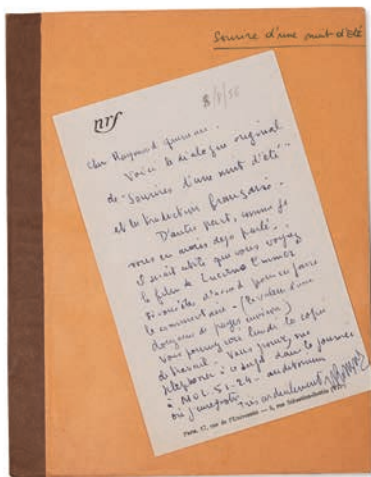 Sourire d'une nuit d'été
nrf
8/8/56
Cher Raymond Queneau.
Voici le dialogue original
de "Sourires d'une nuit d'été"
et la traduction française.
D'autre part, comme je
vous en avais déjà parlé.
il serait utile que vous voyiez
le film de Luciano Emmer
si vous êtes d'accord pour en faire
le commentaire - (la valeur d'une
douzaine de pages environ)
vous pourrez voir lundi la copie
de travail. Vous pouvez me
téléphoner à ce sujet dans la journée
à MOL. 51-24 - auditorium
Très cordialement
Paris, 17, rue de l'Université — 5, rue Sébastien-Bottin (VIIe)